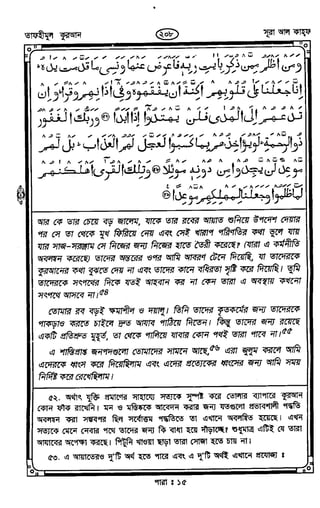 তাফহীমুল কুরআন
২০৮
সূরা আল কাহ্ফ
وَمَنْ أَظْلَمُ مِمَّنْ ذُكِّرَ بِآيٰتِ رَبِّهٖ فَأَعْرَضَ عَنْهَا وَنَسِيَ مَا قَدَّمَتْ يَدٰهُ
إِنَّا جَعَلْنَا عَلٰى قُلُوْبِهِمْ أَكِنَّةً أَنْ يَّفْقَهُوْهُ وَفِيْ اٰذَانِهِمْ وَقْرًا وَإِنْ
تَدْعُهُمْ إِلَى الْهُدٰى فَلَنْ يَّهْتَدُوْا إِذًا أَبَدًا وَرَبُّكَ الْغَفُوْرُ
ذُو الرَّحْمَةِ لَوْ يُؤَاخِذُهُمْ بِمَا كَسَبُوْا لَعَجَّلَ لَهُمُ الْعَذَابَ بَلْ لَّهُمْ
مَّوْعِدٌ لَّنْ يَّجِدُوْا مِنْ دُوْنِهٖ مَوْئِلًا وَتِلْكَ الْقُرٰى أَهْلَكْنٰهُمْ
لَمَّا ظَلَمُوْا وَجَعَلْنَا لِمَهْلِكِهِمْ مَّوْعِدًا
আর কে তার চেয়ে বড় জালেম, যাকে তার রবের আয়াত শুনিয়ে উপদেশ দেয়ার
পর সে তা থেকে মুখ ফিরিয়ে নেয় এবং সেই খারাপ পরিণতির কথা ভুলে যায়
যার সাজ-সরঞ্জাম সে নিজের জন্য নিজের হাতে তৈরী করেছে। (যারা এ কর্মনীতি
অবলম্বন করেছে) তাদের অন্তরের ওপর আমি আবরণ টেনে দিয়েছি, যা তাদেরকে
কুরআনের কথা বুঝতে দেয় না এবং তাদের কানে বধিরতা সৃষ্টি করে দিয়েছি। তুমি
তাদেরকে সৎপথের দিকে যতই আহবান কর না কেন তারা এ অবস্থায় কখনো
সৎপথে আসবে না।৫৪
তোমার রব বড়ই ক্ষমাশীল ও দয়ালু। তিনি তাদের কৃতকর্মের জন্য তাদেরকে
পাকড়াও করতে চাইলে দ্রুত আযাব পাঠিয়ে দিতেন। কিন্তু তাদের জন্য রয়েছে
একটি প্রতিশ্রুত মুহূর্ত, তা থেকে পালিয়ে যাবার কোন পথই তারা পাবে না।৫৫
এ শাস্তিপ্রাপ্ত জনপদগুলো তোমাদের সামনে আছে,৫৬ এরা জুলুম করলে আমি
এদেরকে ধ্বংস করে দিয়েছিলাম এবং এদের প্রত্যেকের ধ্বংসের জন্য আমি সময়
নির্দিষ্ট করে রেখেছিলাম।
৫২. অর্থাৎ যুক্তি প্রমাণের সাহায্যে সত্যকে সুস্পষ্ট করে তোলার ব্যাপারে কুরআন
কোন ফাঁক রাখেনি। মন ও মস্তিষ্ককে আবেদন করার জন্য যতগুলো প্রভাবশালী পদ্ধতি
অবলম্বন করা সম্ভবপর ছিল সর্বোত্তম পদ্ধতিতে তা এখানে অবলম্বিত হয়েছে। এখন
সত্যকে মেনে নেবার পথে তাদের জন্য কি বাধা হয়ে দাঁড়াচ্ছে? শুধুমাত্র এটিই যে তারা
আযাবের অপেক্ষা করছে। পিটুনি খাওয়া ছাড়া তারা সোজা হতে চায় না।
৫৩. এ আয়াতেরও দু'টি অর্থ হতে পারে এবং এ দু'টি অর্থই এখানে প্রযোজ্য :
পারা : ১৫